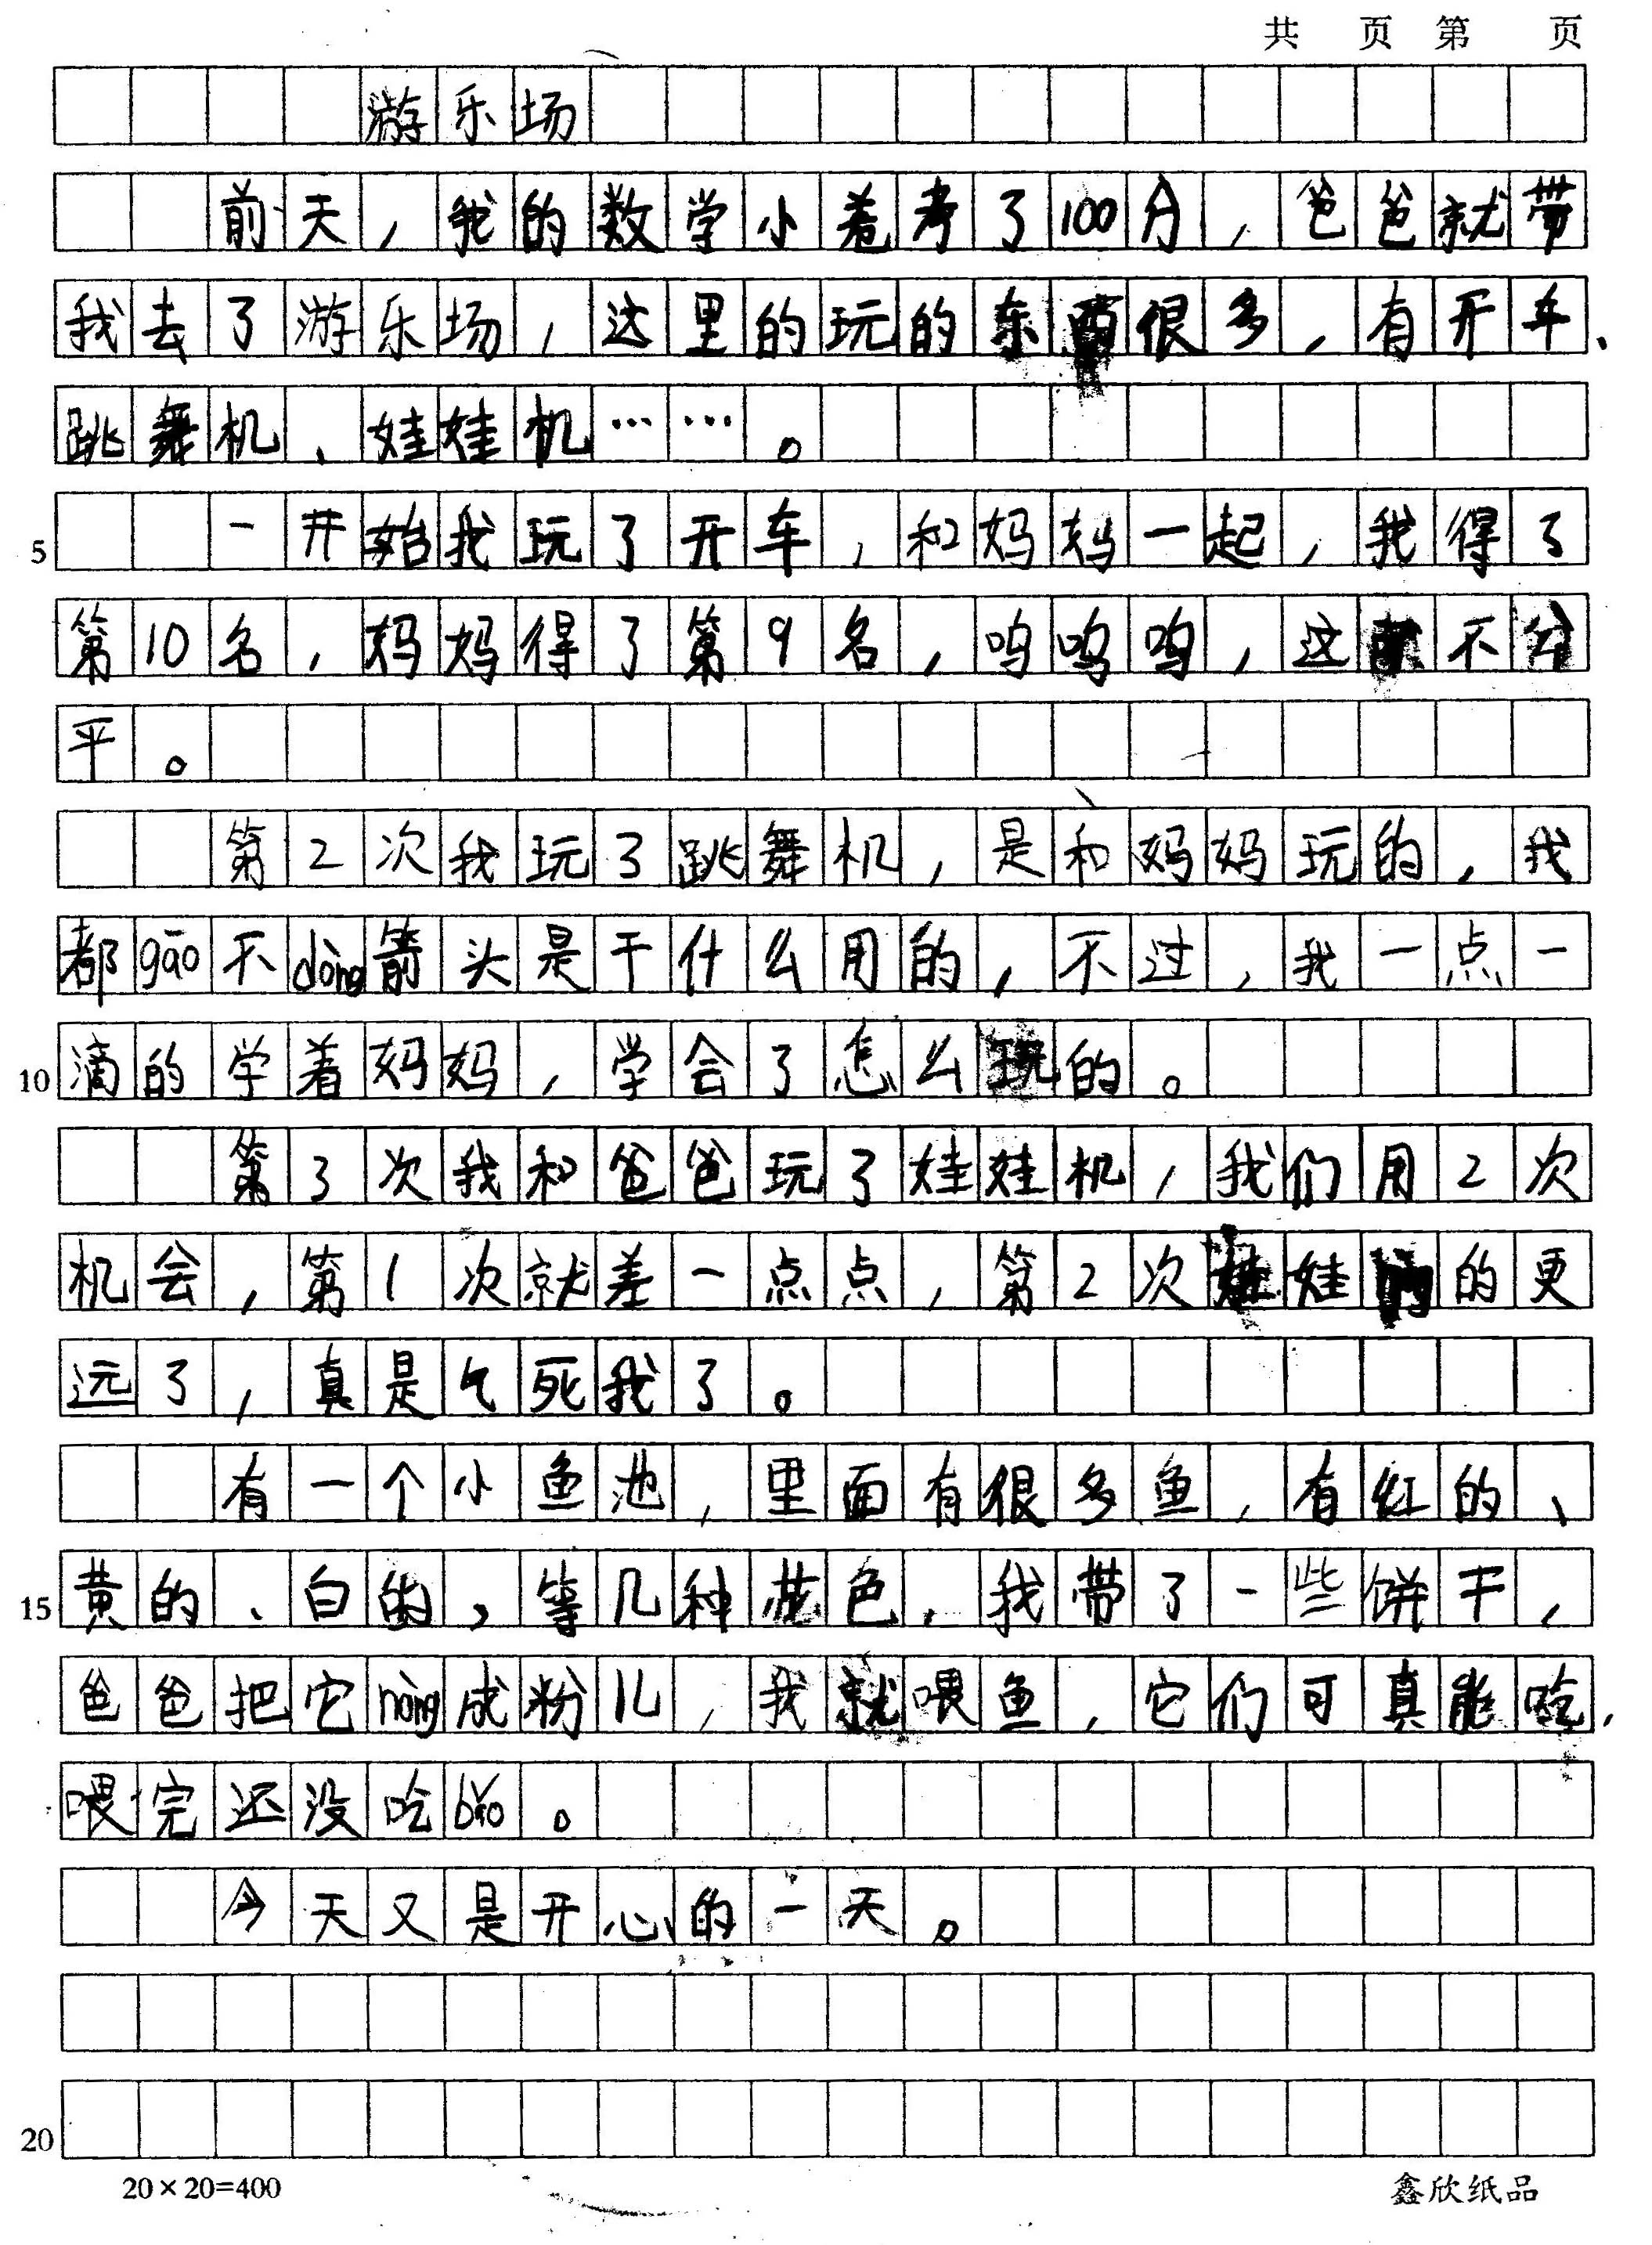 共 页 第 页
游乐场
前天，我的数学小卷考了100分，爸爸就带
我去了游乐场，这里的玩的东西很多，有开车、
跳舞机、娃娃机……。
一开始我玩了开车，和妈妈一起，我得了
5
第10名，妈妈得了第9名，呜呜呜，这不公
平。
第2次我玩了跳舞机，是和妈妈玩的，我
都gāo不dǒng箭头是干什么用的，不过，我一点一
滴的学着妈妈，学会了怎么玩的。
10
第3次我和爸爸玩了娃娃机，我们用2次
机会，第1次就差一点点，第2次娃娃的更
远了，真是气死我了。
有一个小鱼池，里面有很多鱼，有红的、
黄的、白的，等几种花色，我带了一些饼干，
15
爸爸把它nòng成粉儿，我就喂鱼，它们可真能吃，
喂完还没吃bǎo。
今天又是开心的一天。
20
20×20=400 鑫欣纸品